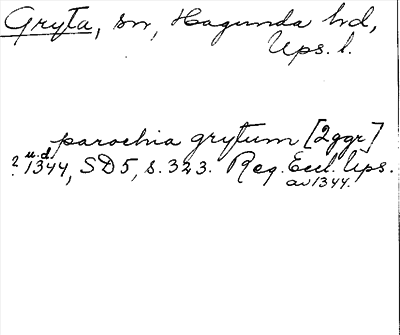 Gryta, sn, Hagunda hd,
Ups. l.
parochia grytum [2ggr]
u.d.
? 1344, SD5, s. 323. Reg. Eccl. Ups.
av 1344.